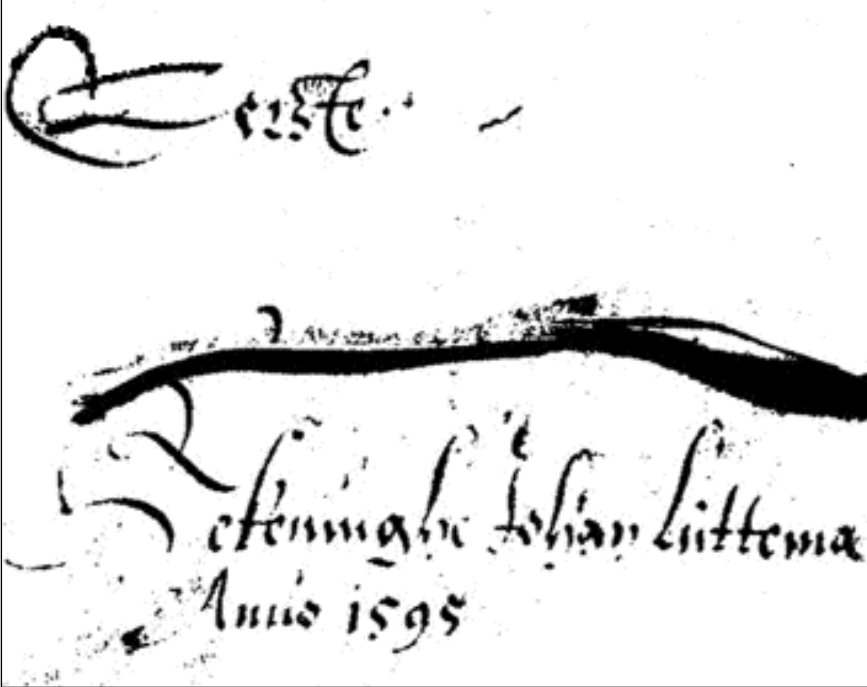 Eerste
Rekeninghe Johan luttema
Anno 1595